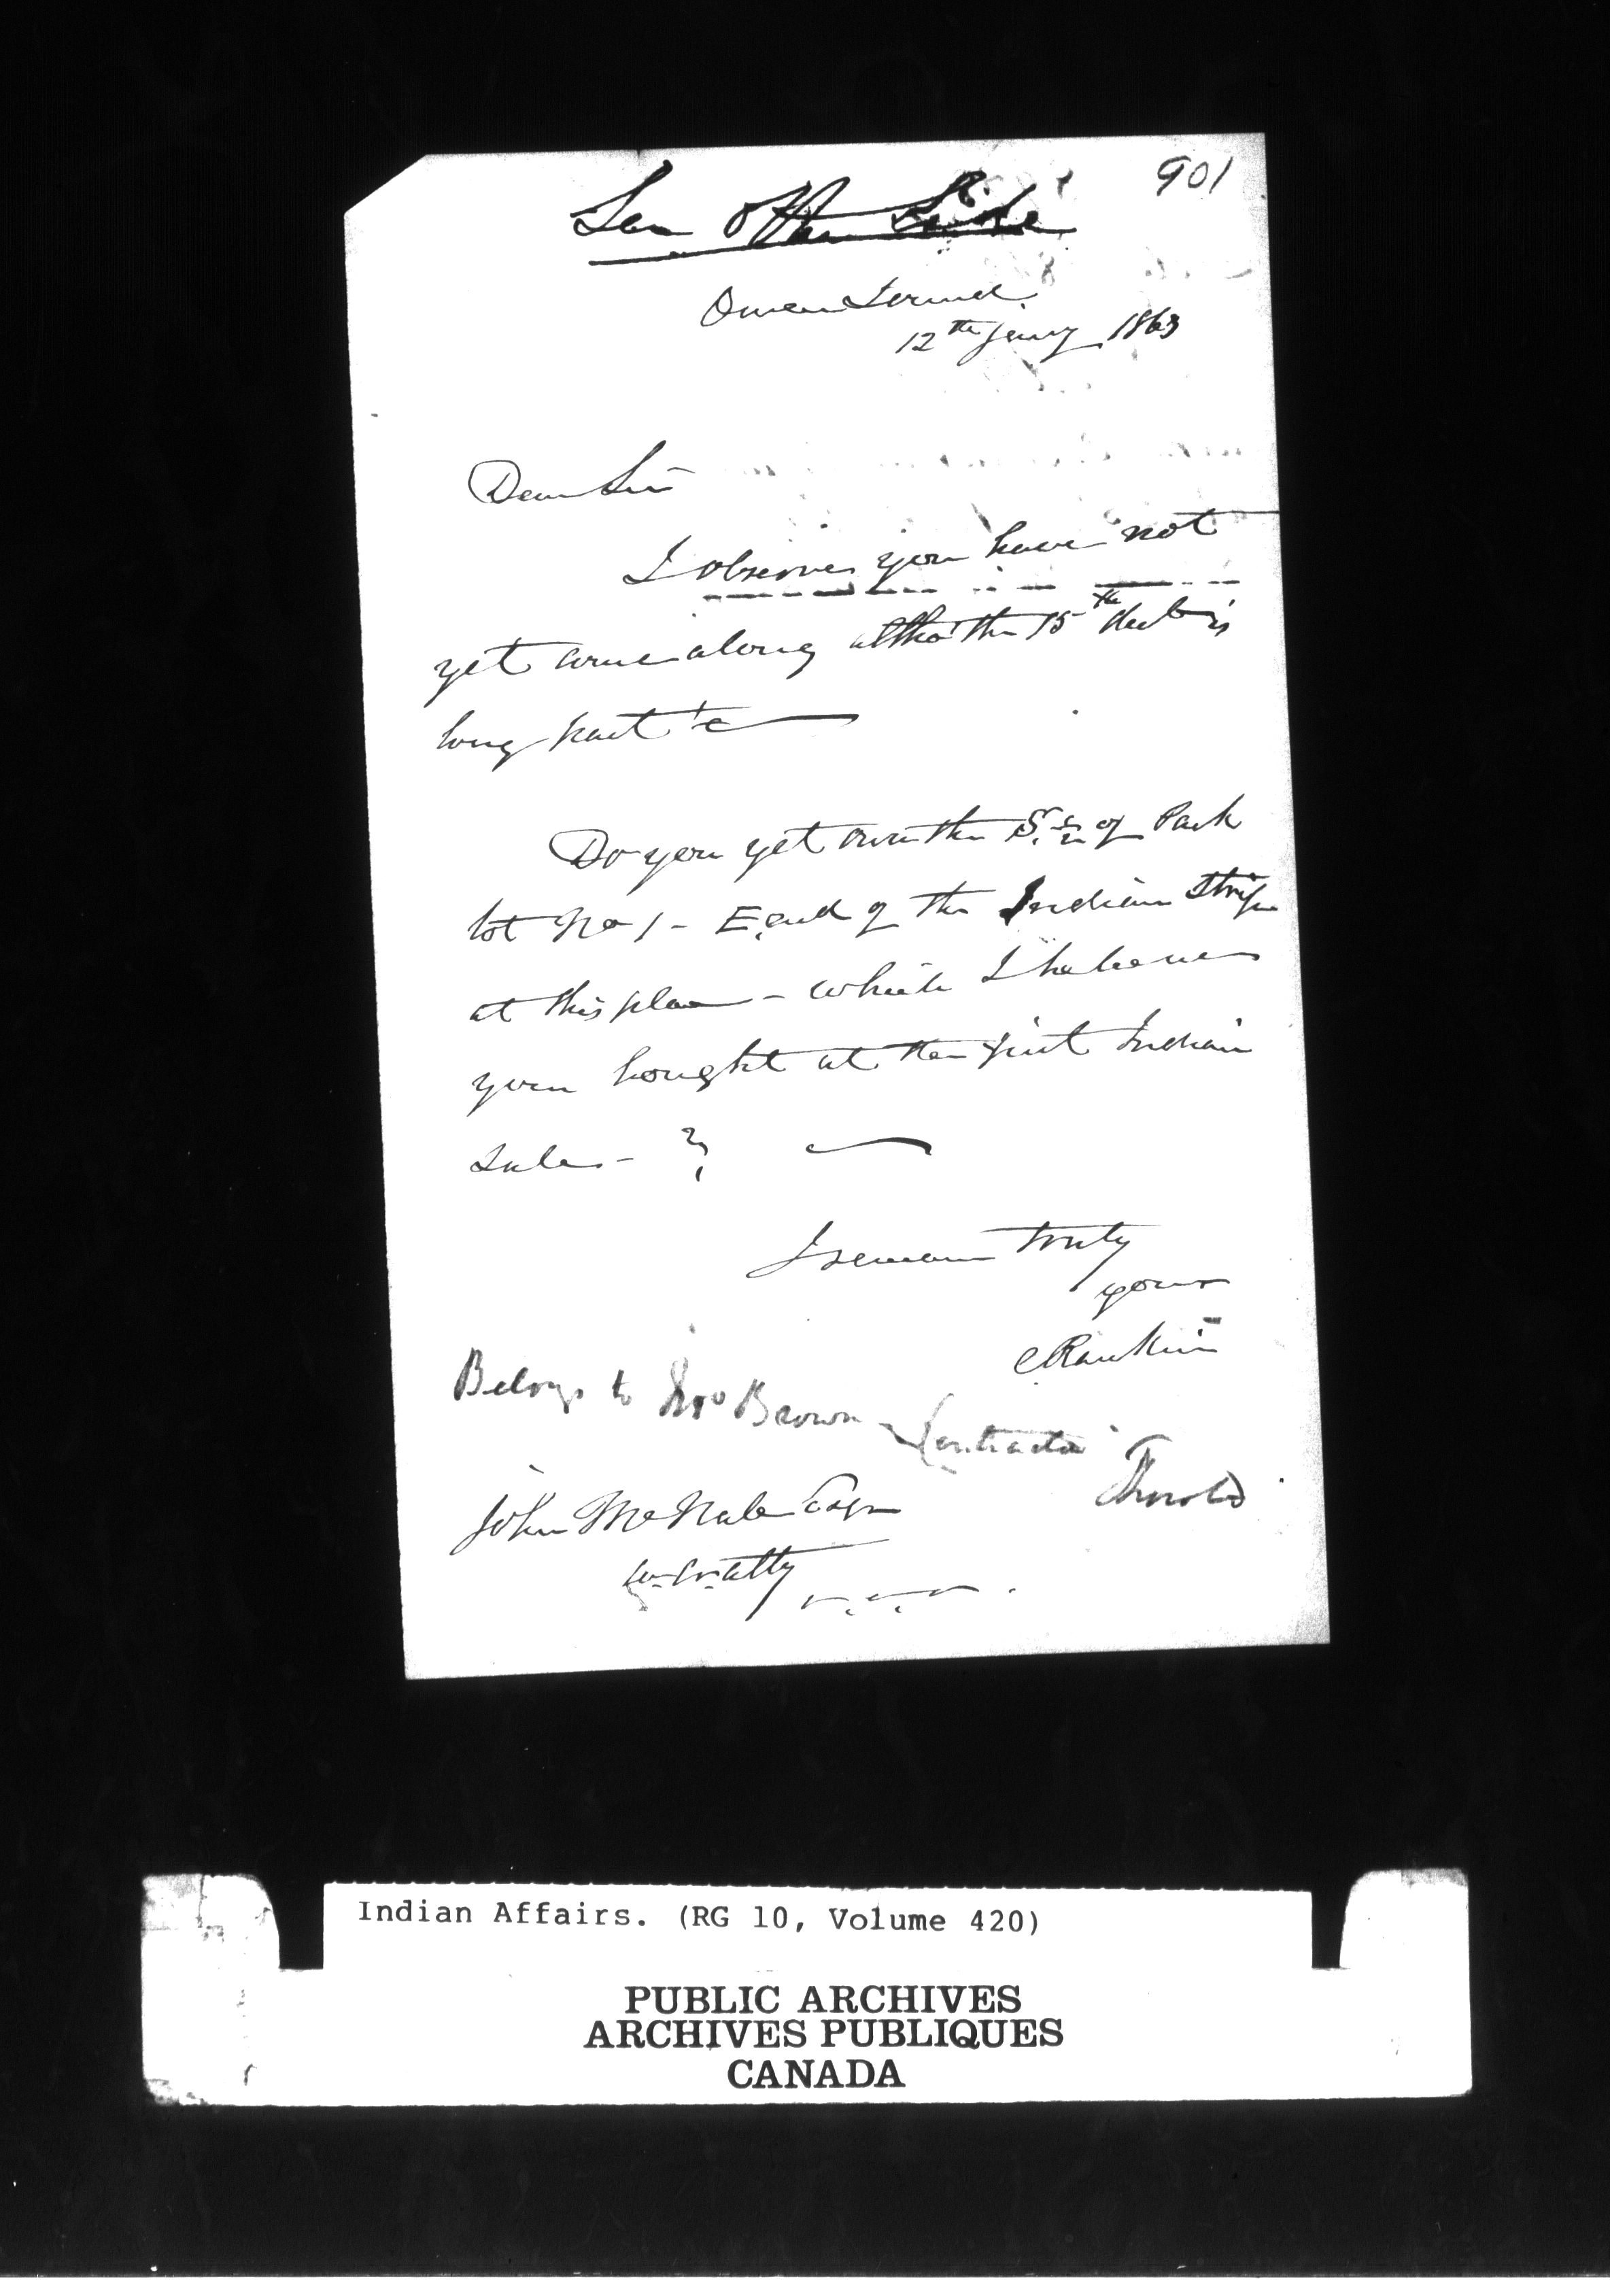 901
See Other Side
Owen Sound.
12th Jany 1863
Dear Sir
I observe you have not
yet come along altho' the 15th Decbr is
long past &c
Do you yet own the S. ½ of Park
lot No 1 - E. end of the Indian Strip
at this place - which I believe
you bought at the first Indian
Sales - ?
I remain truly
yours
C Rankin
Belongs to Mr Brown - Contractor
Thorold
John McNabb Esqr
Indian Affairs. (RG 10, Volume 420)
PUBLIC ARCHIVES
ARCHIVES PUBLIQUES
CANADA